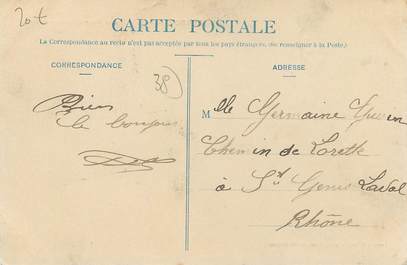 20t
CARTE POSTALE
(La Correspondance au recto n'est pas acceptée par tous les pays étrangers, (Se renseigner à la Poste.)
CORRESPONDANCE
ADRESSE
38
Bien
le bonjour
Mlle Germaine
Chemin de Lorette
à St Genis Laval
Rhône